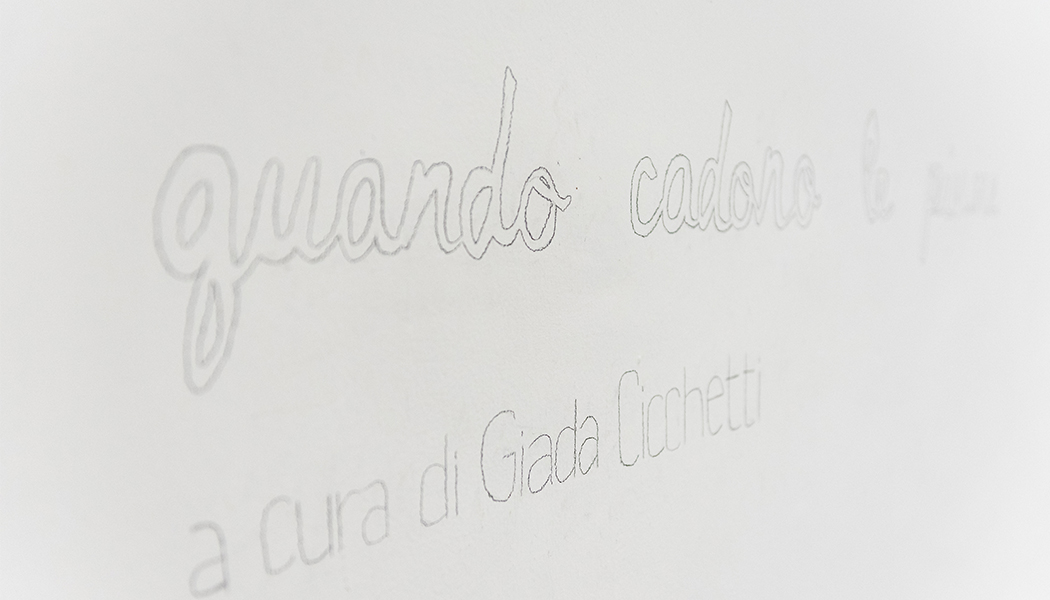 quando cadono le
a cura di Giada Cicchetti